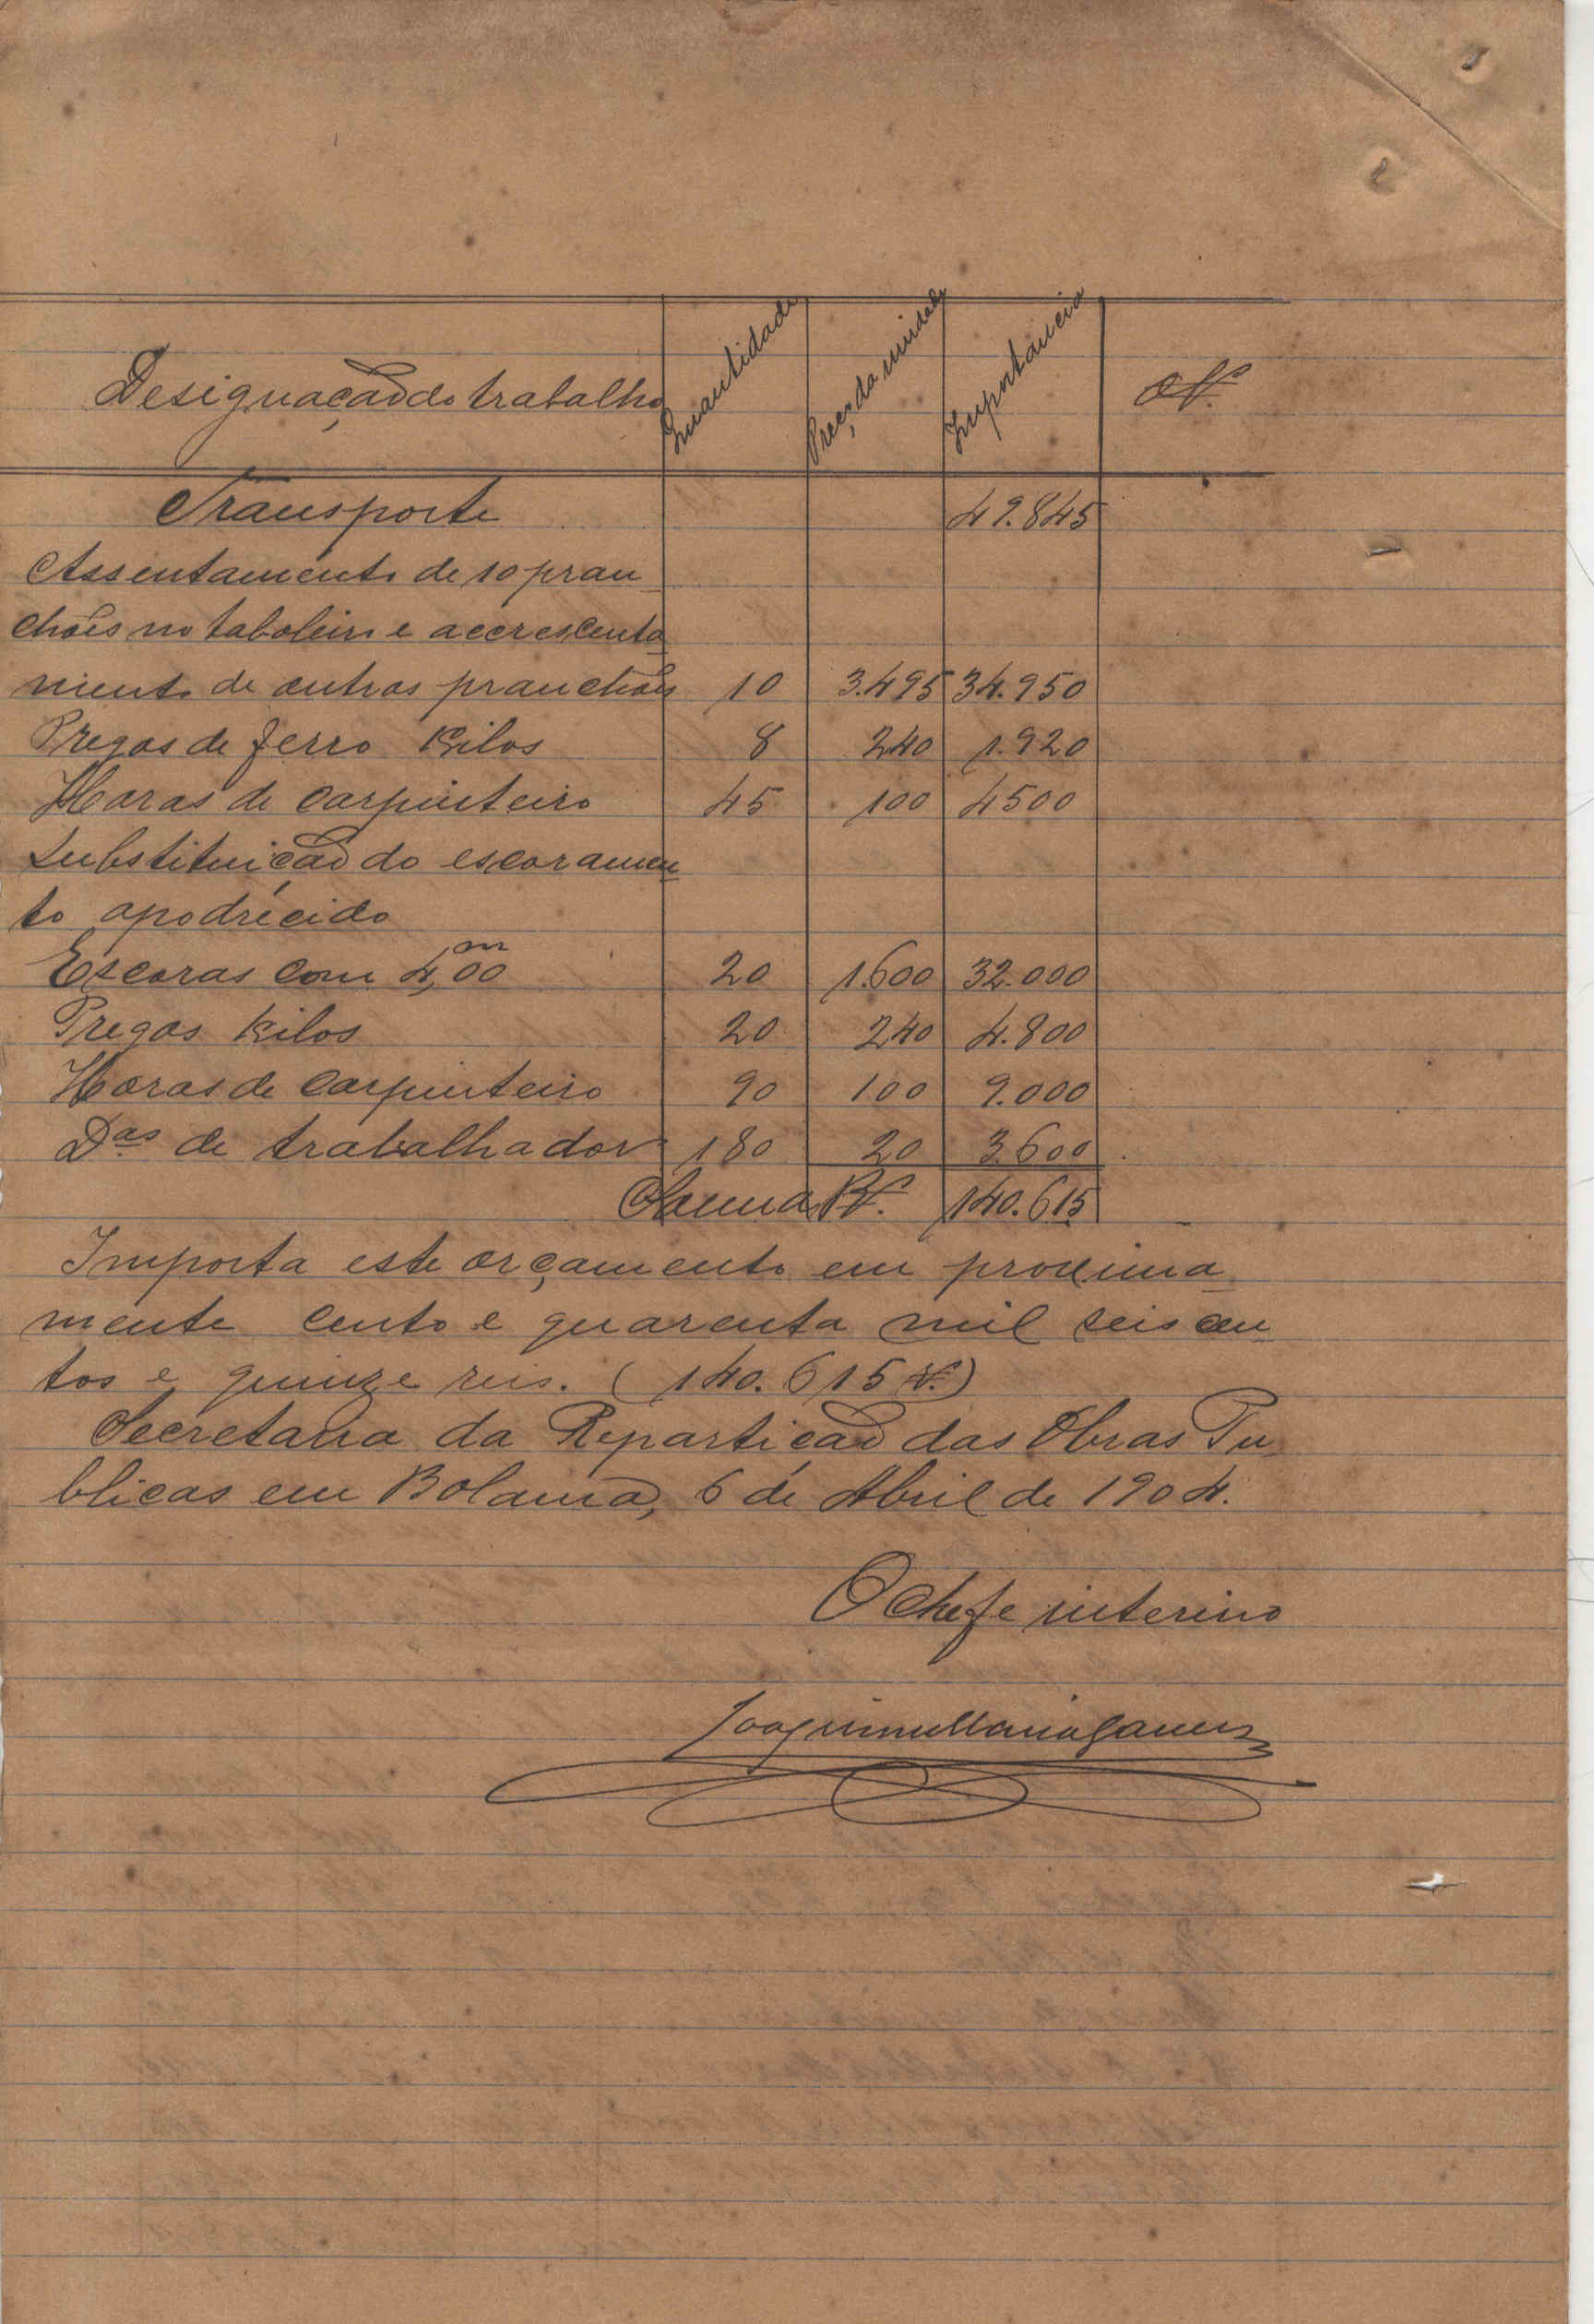 Designação do trabalho Quantidade Preço da unidade Importancia
Transporte 49.845
Assentamento de 10 pran
chões no taboleiro e accrescenta
mento de outros pranchões 10 3.495 34.950
Pregos de ferro Kilos 8 240 1.920
Horas de carpinteiro 45 100 4500
Substituição do escoramen
to apodrecido
Escoras com 4,00 m 20 1.600 32.000
Pregos Kilos 20 240 4.800
Horas de carpinteiro 90 100 9.000
Das de trabalhador 180 20 3.600
Somma Rs. 140.615
Importa este orçamento em proxima
mente cento e quarenta mil seis cen
tos e quinze reis. (140.615 rs.)
Secretaria da Repartição das Obras Pu
blicas em Bolama, 6 de Abril de 1904.
O Chefe interino
Joaquim Maria